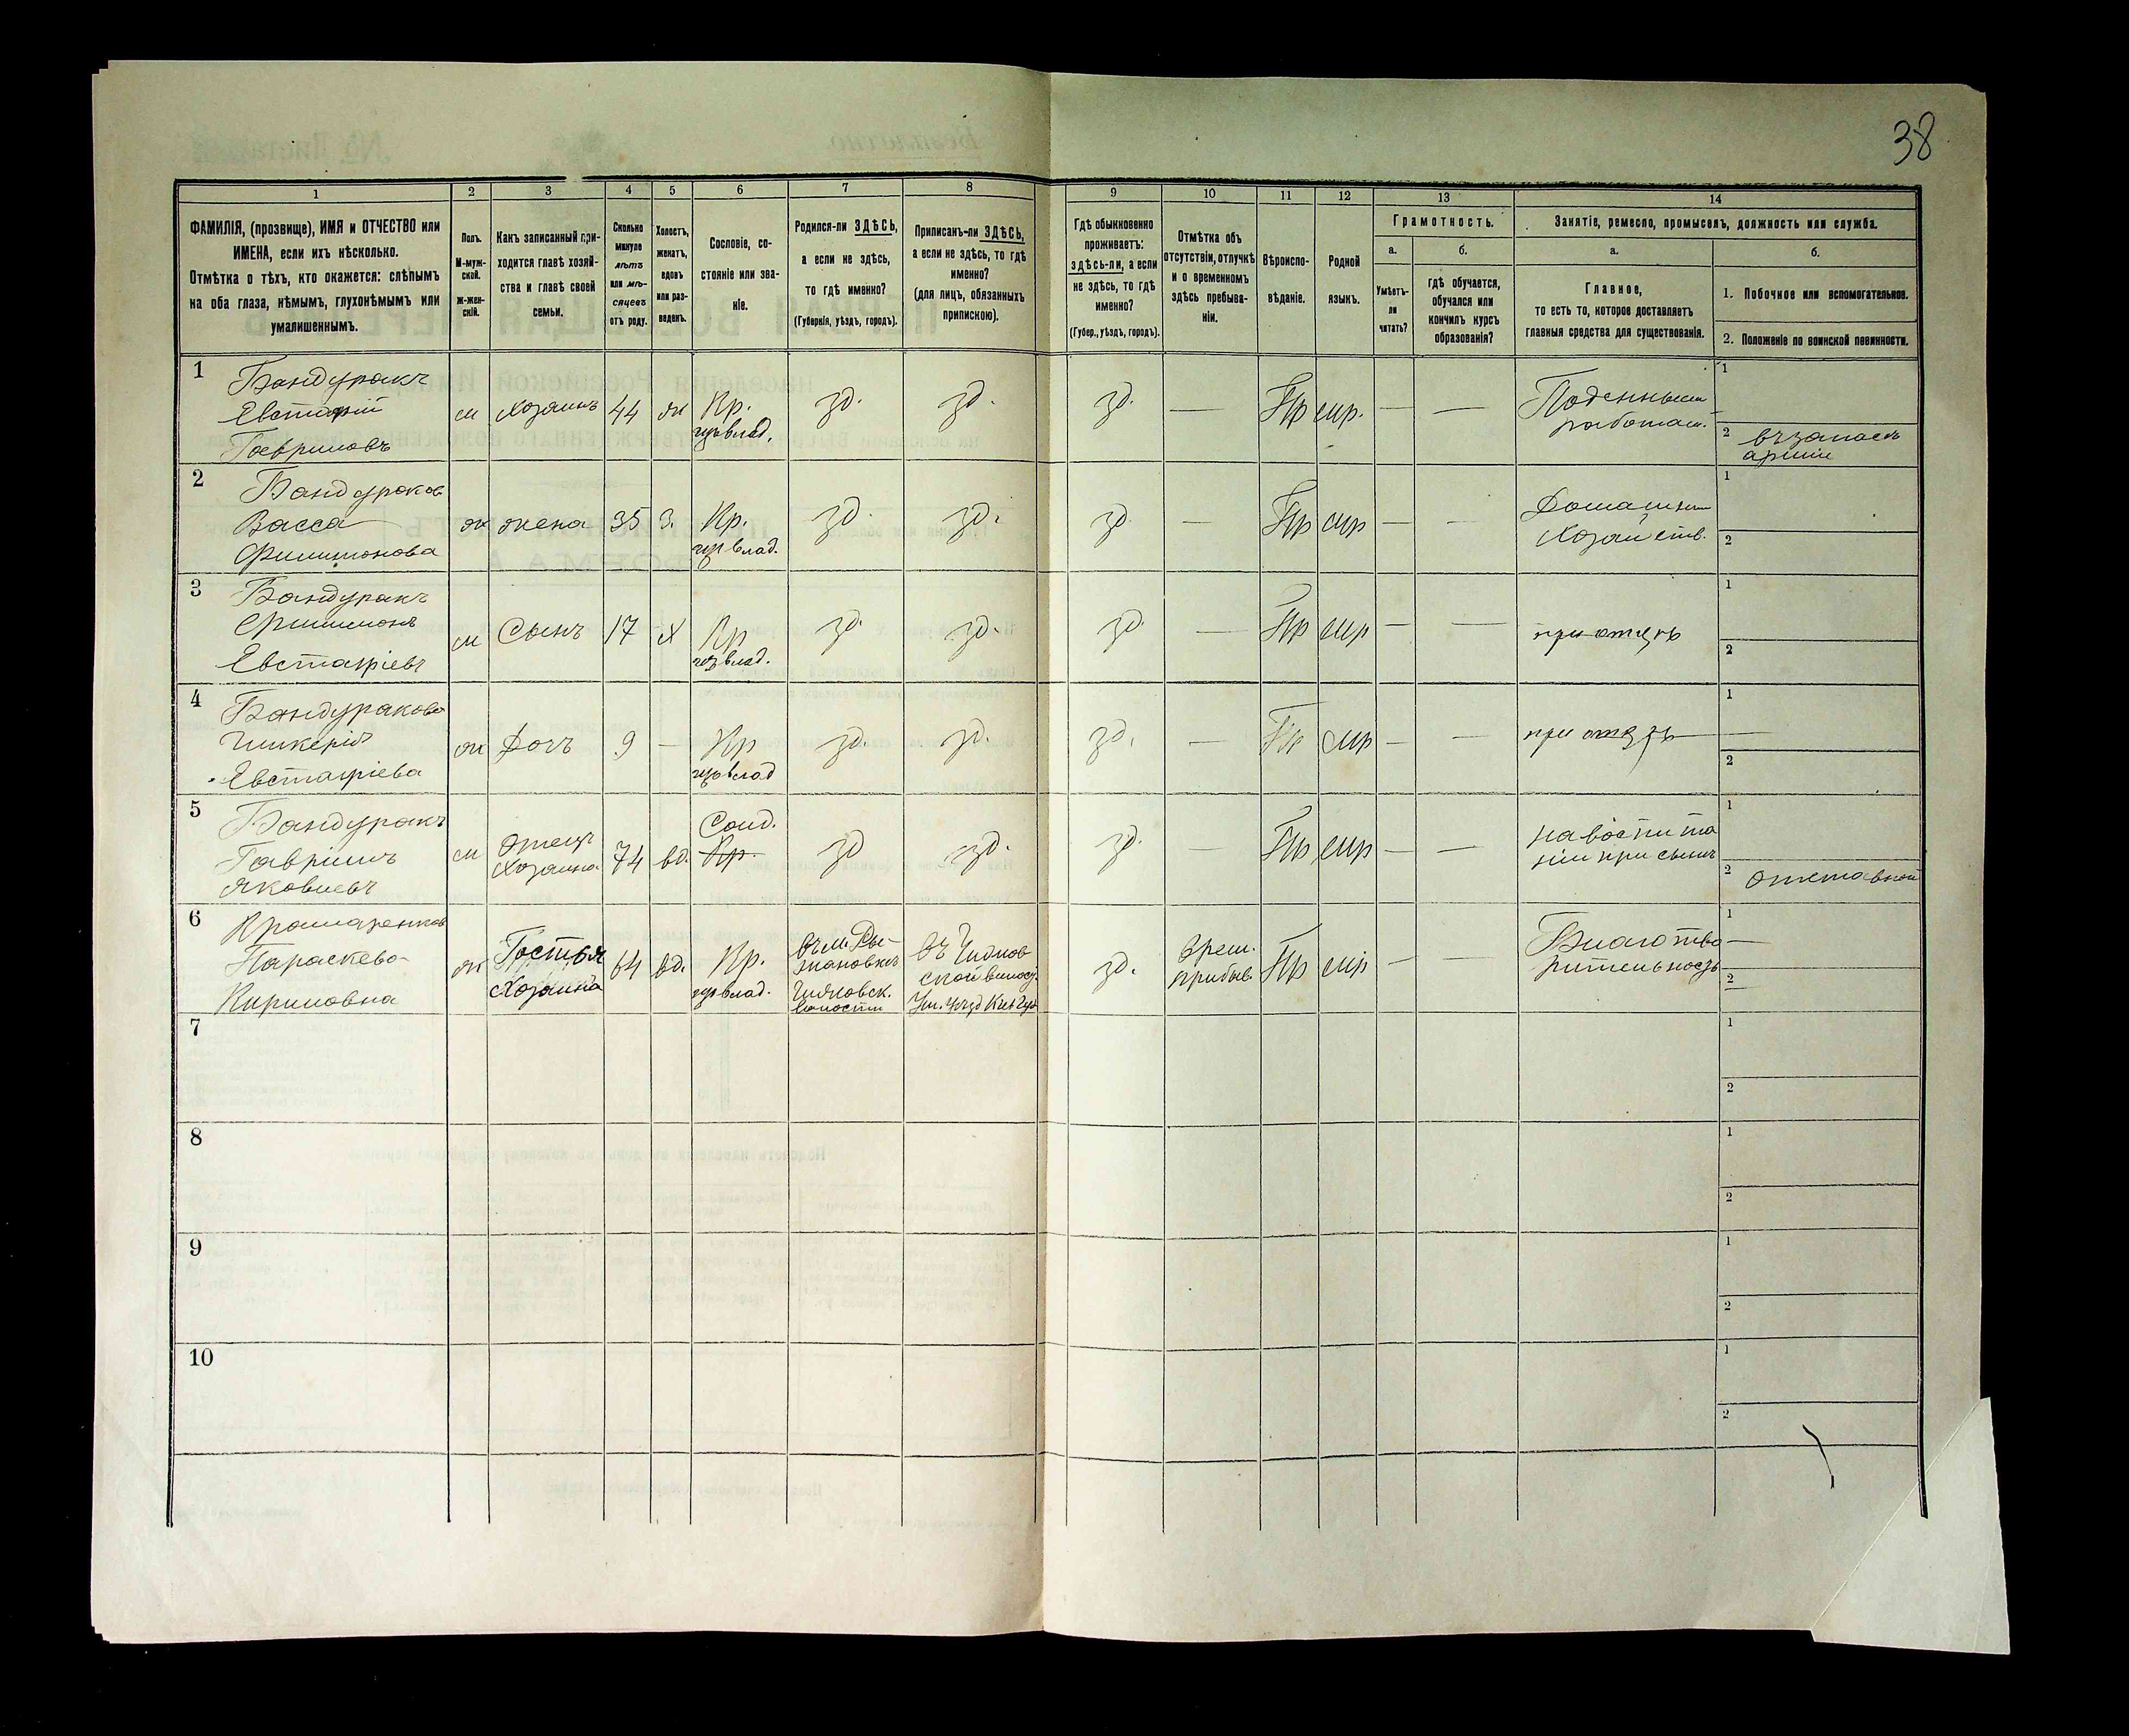 38
1
2
3
4
5
6
7
8
9
10
11
12
13
14
ФАМИЛІЯ, (прозвище), ИМЯ и ОТЧЕСТВО или
ИМЕНА, если ихъ нѣсколько.
Отмѣтка о тѣхъ, кто окажется: слѣпымъ
на оба глаза, нѣмымъ, глухонѣмымъ или
умалишеннымъ.
Полъ.
М-муж-
ской.
Ж-жен-
скій.
Какъ записанный при-
ходится главѣ хозяй-
ства и главѣ своей
семьи.
Сколько
минуло
лѣтъ
или мѣ-
сяцевъ
отъ роду.
Холостъ,
женатъ,
вдовъ
или раз-
веденъ.
Сословіе, со-
стояніе или зва-
ніе.
Родился-ли ЗДѢСЬ,
а если не здѣсь,
то гдѣ именно?
(Губернія, уѣздъ, городъ).
Приписанъ-ли ЗДѢСЬ,
а если не здѣсь, то гдѣ
именно?
(для лицъ, обязанныхъ
припискою).
Гдѣ обыкновенно
проживаетъ:
здѣсь-ли, а если
не здѣсь, то гдѣ
именно?
(Губер., уѣздъ, городъ).
Отмѣтка объ
отсутствіи, отлучкѣ
и о временномъ
здѣсь пребыва-
ніи.
Вѣроиспо-
вѣданіе.
Родной
языкъ.
Грамотность.
а.
Умѣетъ-
ли
читать?
б.
гдѣ обучается,
обучался или
кончилъ курсъ
образованія?
Занятіе, ремесло, промыселъ, должность или служба.
а.
Главное,
то есть то, которое доставляетъ
главныя средства для существованія.
б.
1. Побочное или вспомогательное.
2. Положеніе по воинской повинности.
1
Бандуракъ
Евстафій
Гавриловъ
м
Хозяинъ
44
ж
Кр.
изъ влад.
зд.
зд.
зд.
—
Пр
мр.
—
—
Поденным
работам.
1
2 въ запасѣ
арміи
2
Бандураков
Васса
Филимонова
ж
жена
35
З.
Кр.
изъ влад.
зд.
зд.
зд
—
Пр
мр
—
—
Домашним
Хозяйств.
1
2
3
Бандуракъ
Филимонъ
Евстафіевъ
м
Сынъ
17
х
Кр
изъ влад.
зд.
зд.
зд.
—
Пр
мр
—
—
при отцѣ
1
2
4
Бандуракова
Гликерія
Евстафіева
ж
Дочь
9
—
Кр
изъ влад
зд.
зд.
зд.
—
Пр
мр
—
—
при отцѣ
1
—
2
5
Бандуракъ
Гавріилъ
Яковлевъ
м
Отецъ
Хозяина
74
вд.
Солд.
Кр.
зд
зд.
зд.
—
Пр
мр
—
—
На воспита
ніи при сынѣ
1
2 Отставной
6
Крамаренков
Параскева
Кириловна
ж
Гостья
Хозяина
64
вд.
Кр.
изъ влад.
волости
въ
ской волос.
зд.
врем.
прибыв.
Пр
мр
—
—
Благотво
рительность
1
—
2
7
1
2
8
1
2
9
1
2
10
1
2